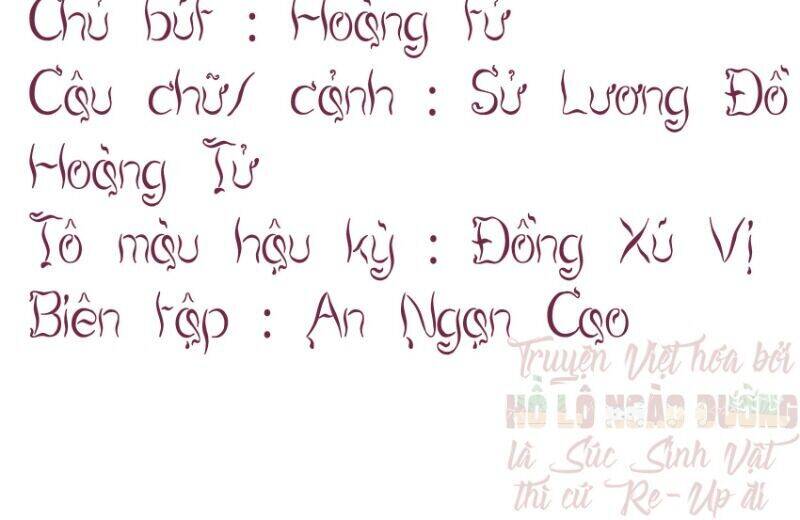 Chủ bút : Hoàng Tử
Câu chữ/ cảnh : Sử Lương Đồ
Hoàng Tử
Tô màu hậu kỳ : Đồng Xú Vị
Biên tập : An Ngan Cao
Truyện Việt hóa bởi
HỒ LÔ NGÀO ĐƯỜNG
là Súc Sinh Vật
thì cứ Re-Up đi